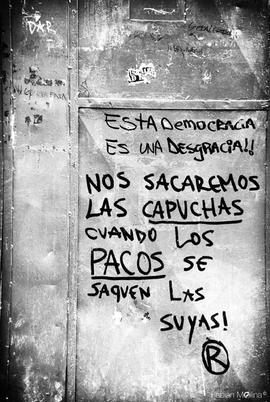 DAR
ESTA DEMOCRACIA
ES UNA DESGRACIA!!
NOS SACAREMOS
LAS CAPUCHAS
CUANDO LOS
PACOS SE
SAQUEN LAS
SUYAS!
R
Fabián Molina